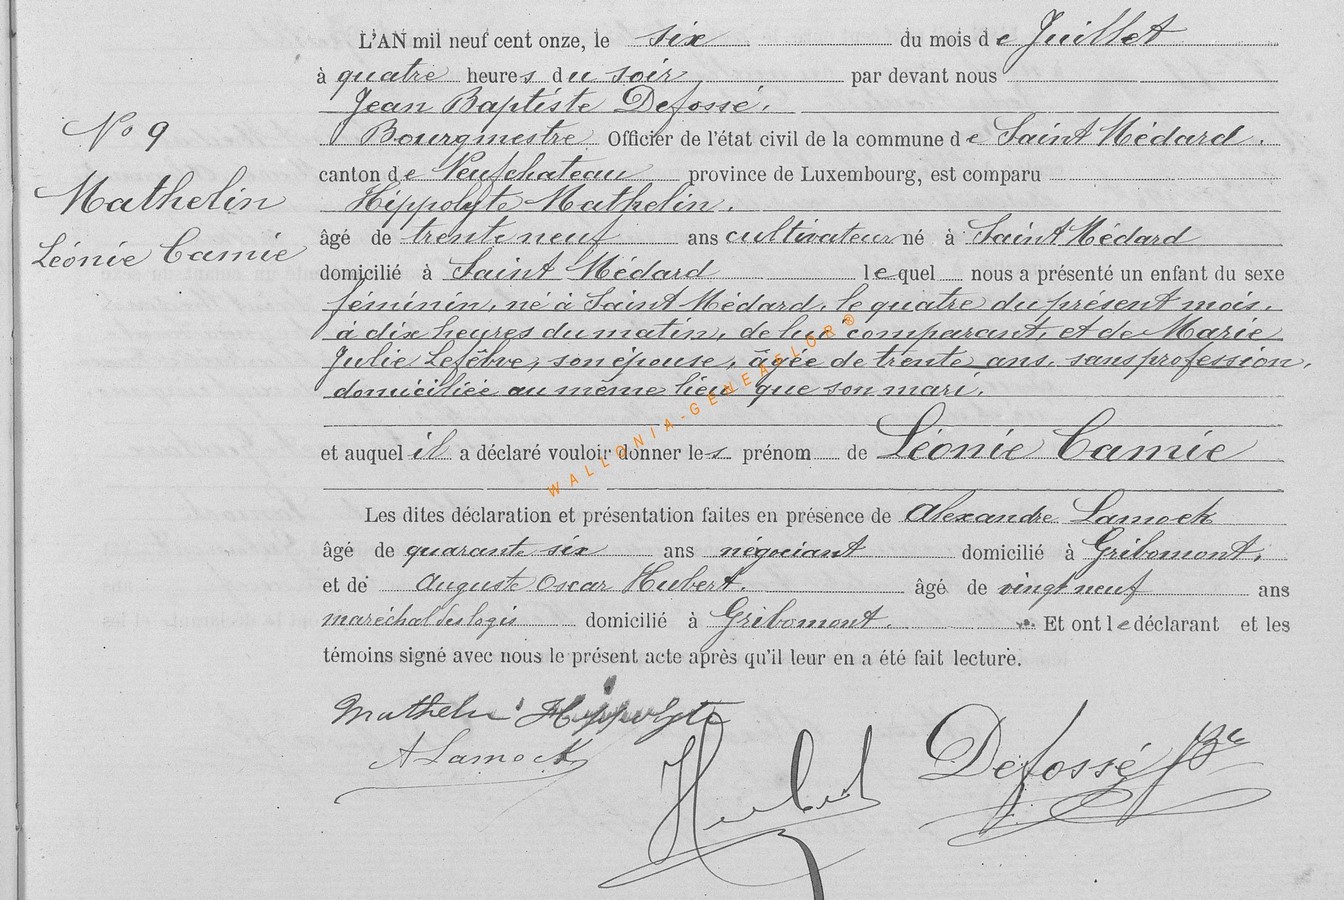 L'AN mil neuf cent onze, le six du mois de Juillet
à quatre heures du soir par devant nous
Jean Baptiste Defossé.
Bourgmestre Officier de l'état civil de la commune de Saint Médard.
canton de Neufchateau province de Luxembourg, est comparu
Hippolyte Mathelin.
âgé de trente neuf ans cultivateur né à Saint Médard
domicilié à Saint Médard lequel nous a présenté un enfant du sexe
féminin, né à Saint-Médard, le quatre du présent mois.
à dix heures du matin, de lui comparant, et de Marie
Julie Lefêbve, son épouse, âgée de trente ans, sans profession,
domiciliée au même lieu que son mari.
et auquel il a déclaré vouloir donner les prénom de Léonie Camie
Les dites déclaration et présentation faites en présence de Alexandre Lamock
âgé de quarante six ans négociant domicilié à Gribomont,
et de Auguste Oscar Hubert. âgé de vingt neuf ans
maréchal des logis domicilié à Gribomont. Et ont le déclarant et les
témoins signé avec nous le présent acte après qu'il leur en a été fait lecture.
No 9
Mathelin
Léonie Camie
Mathelin Hippolyte
A Lamock
Hubert
Defossé Jbte
WALLONIA-GENEAFLOR®